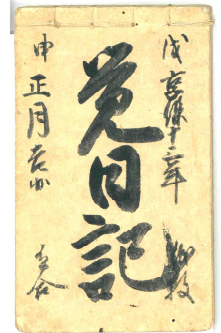 戊 享保十三年
覚日記
申 正月吉日